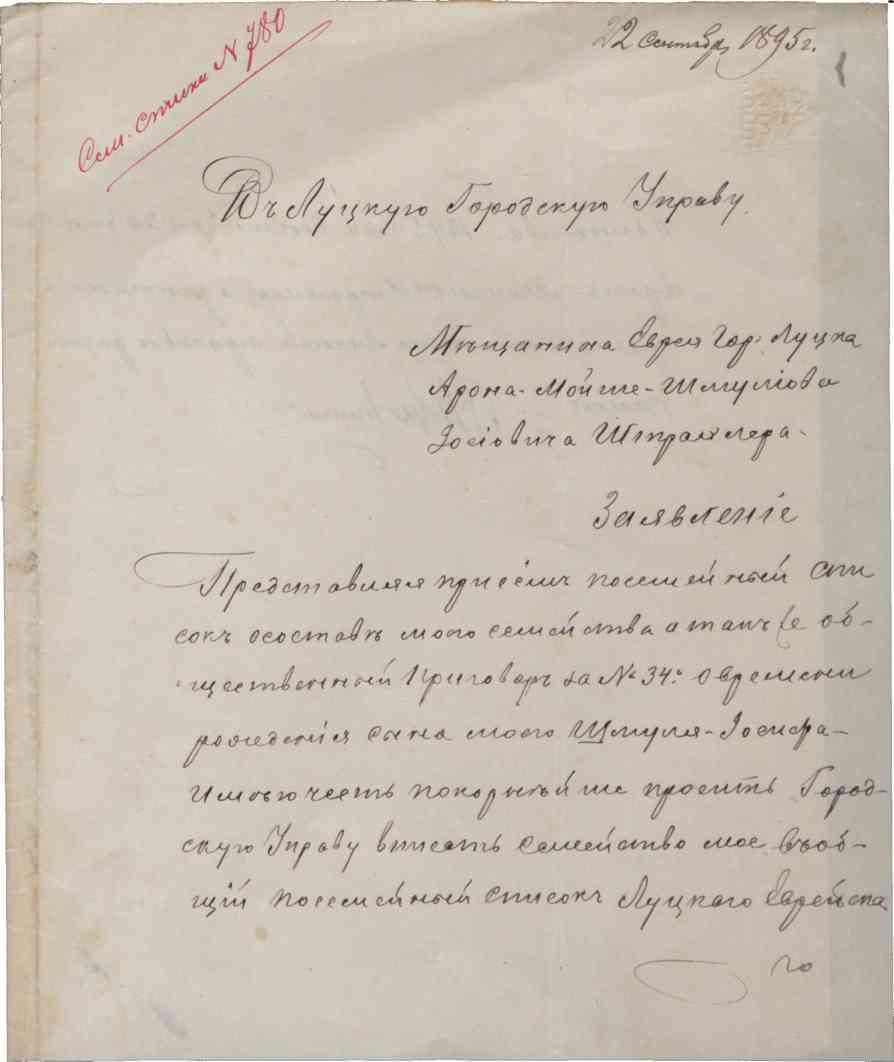 См. стнки N 780
22 Сентября 1895 г.
Въ Луцкую Городскую Управу.
Мѣщанина Еврея Гор. Луцка
Арона-Мойше-Шмуліова
Іосіовича Штрамлера.
Заявленіе
Представляя присемъ посемейный спи
сокъ осоставѣ моего семейства а также об-
щественный Приговоръ за № 34. о времени
рождения сына моего Шмуля-Іосифа-
Имѣю честь покорнѣйше просить Город-
скую Управу вписать семейство мое въоб-
щій посемейный списокъ Луцкаго Еврейска
го